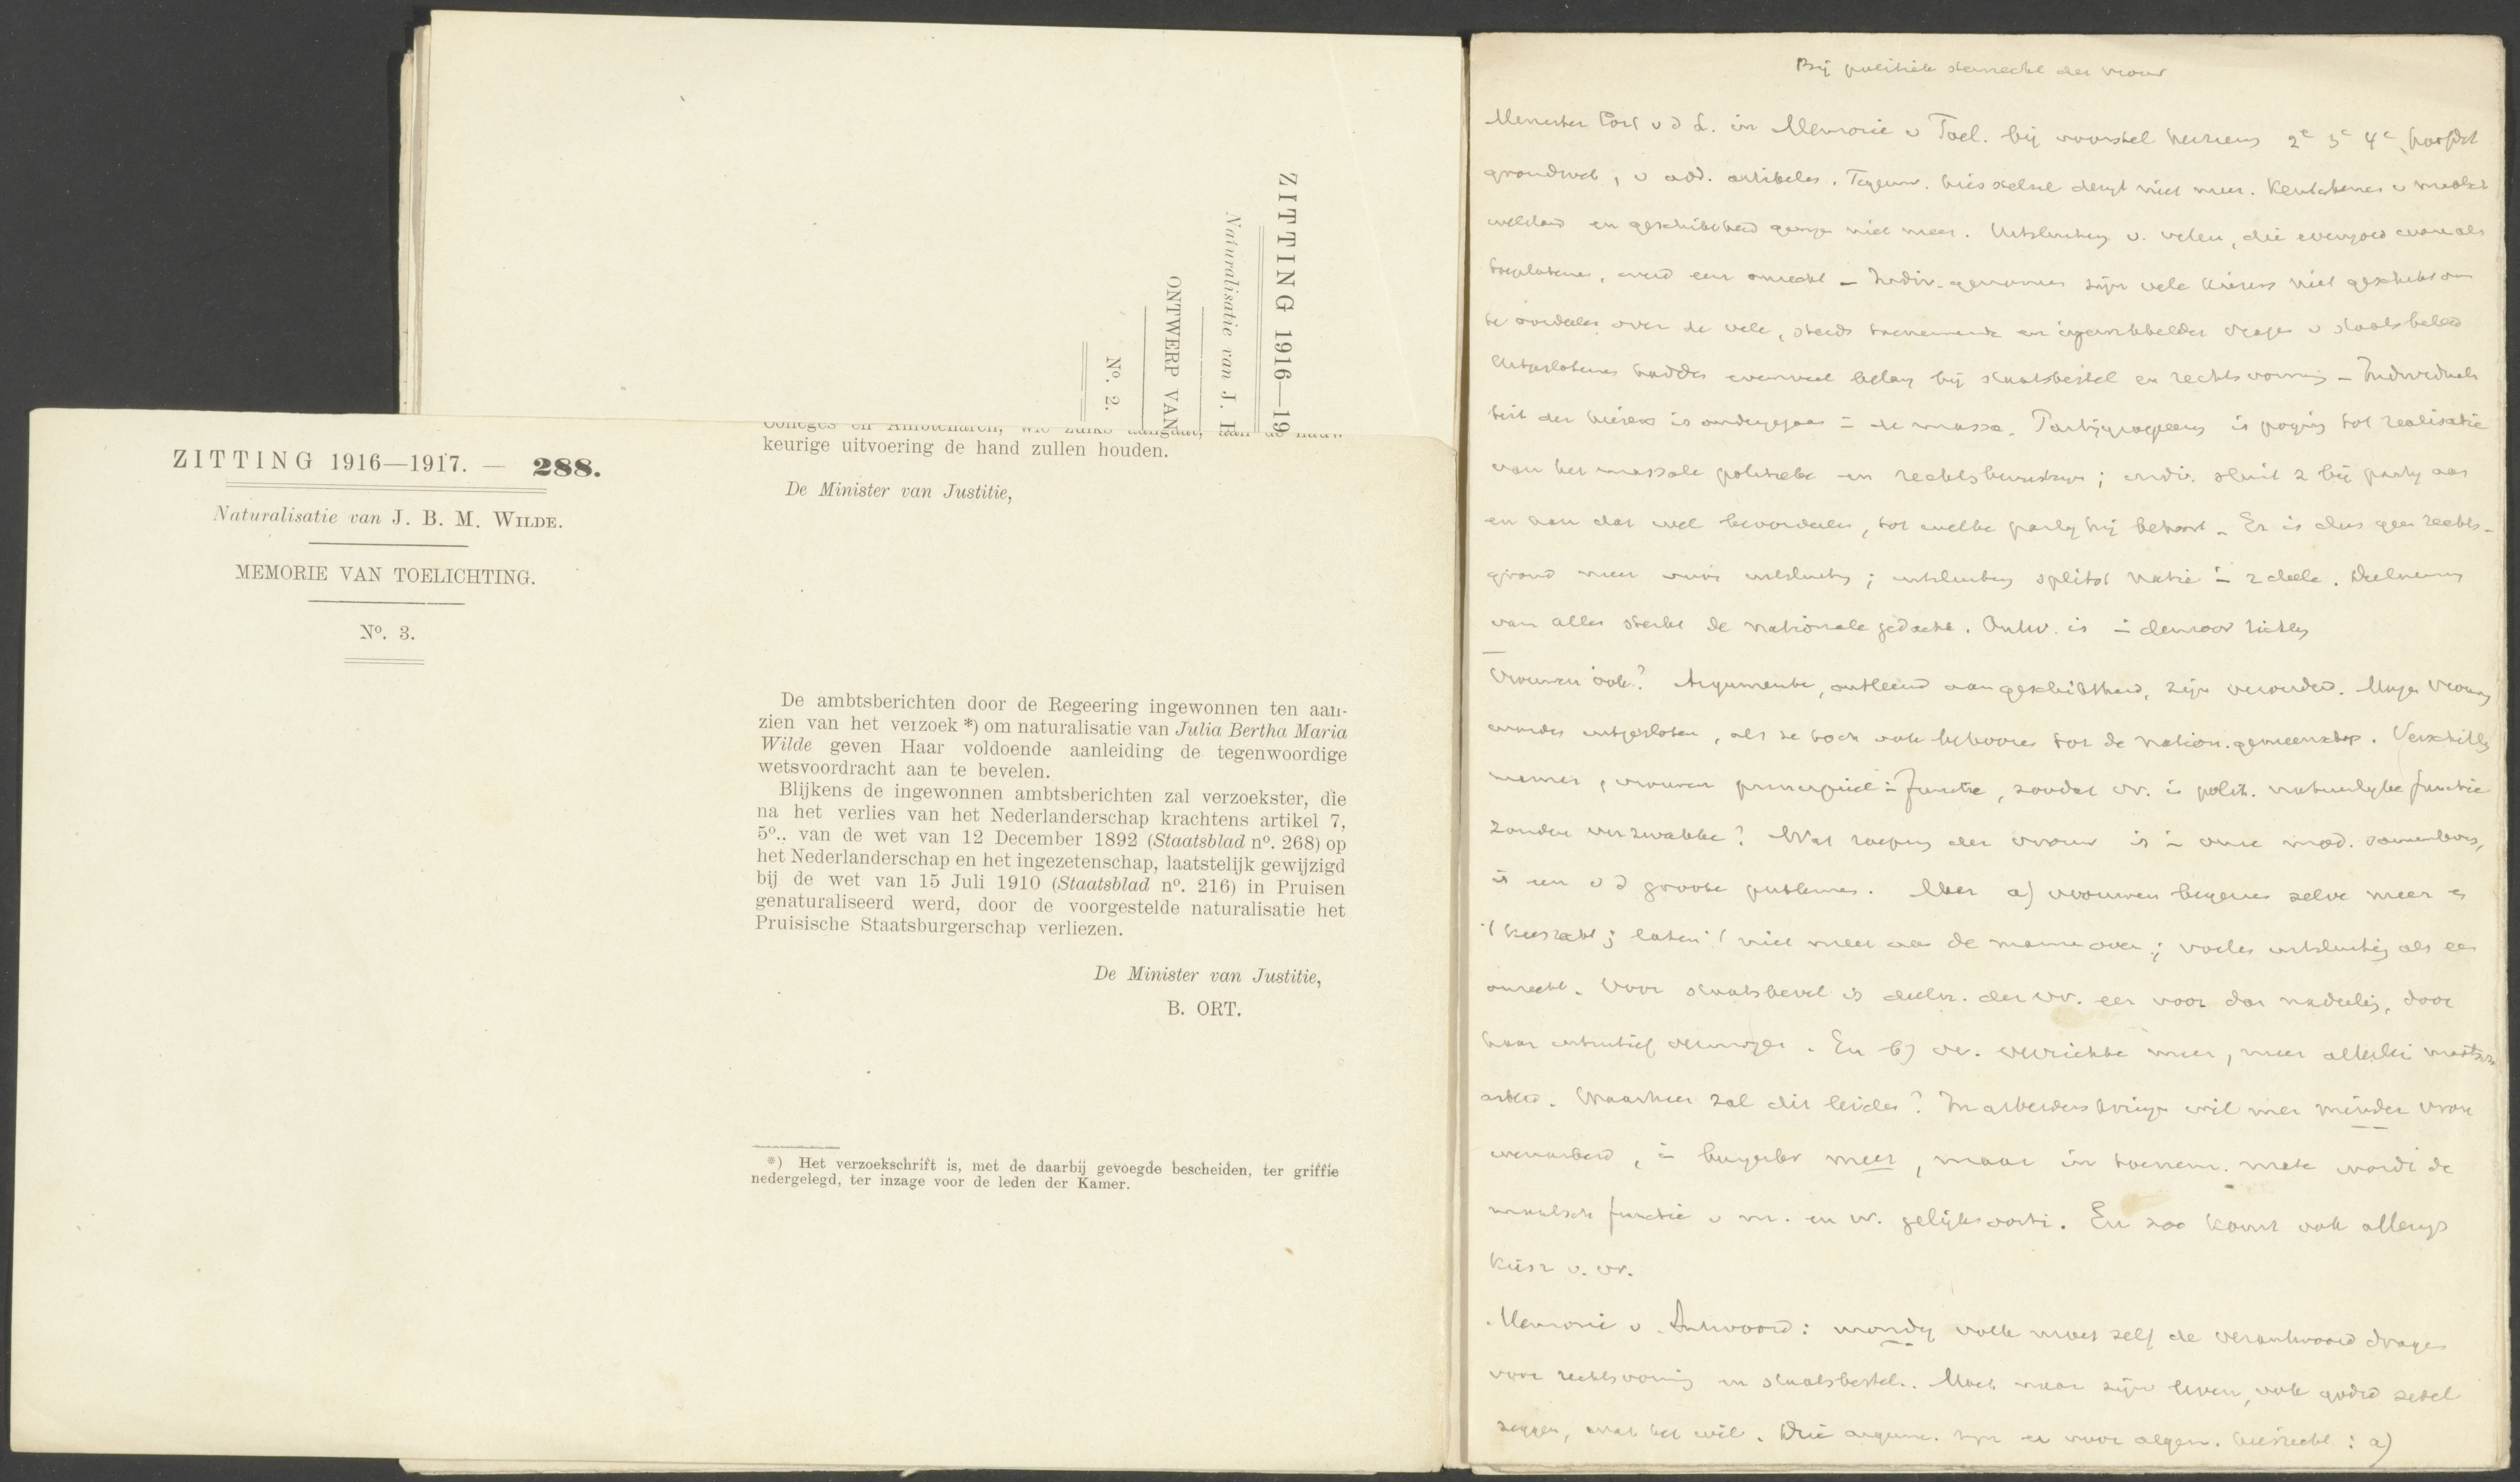 ZITTING 1916—19
Naturalisatie van J. B
ONTWERP VAN
No. 2.
ZITTING 1916—1917. — 288.
Naturalisatie van J. B. M. WILDE.
MEMORIE VAN TOELICHTING.
No. 3.
Colleges en Ambtenaren, wie zulks aangaat, aan de nauw-
keurige uitvoering de hand zullen houden.
De Minister van Justitie,
De ambtsberichten door de Regeering ingewonnen ten aan-
zien van het verzoek *) om naturalisatie van Julia Bertha Maria
Wilde geven Haar voldoende aanleiding de tegenwoordige
wetsvoordracht aan te bevelen.
Blijkens de ingewonnen ambtsberichten zal verzoekster, die
na het verlies van het Nederlanderschap krachtens artikel 7,
5o., van de wet van 12 December 1892 (Staatsblad no. 268) op
het Nederlanderschap en het ingezetenschap, laatstelijk gewijzigd
bij de wet van 15 Juli 1910 (Staatsblad no. 216) in Pruisen
genaturaliseerd werd, door de voorgestelde naturalisatie het
Pruisische Staatsburgerschap verliezen.
De Minister van Justitie,
B. ORT.
*) Het verzoekschrift is, met de daarbij gevoegde bescheiden, ter griffie
nedergelegd, ter inzage voor de leden der Kamer.
Bij politiek stemrecht der vrouw
Minister Cort v d L. in Memorie v Toel. bij voorstel 2e 3e 4e hoofdst
grondwet, v add. artikelen. Tegenw. kiesstelsel deugt niet meer. Kenteekenen v maatsch
welstand en geschiktheid niet meer. Uitsluiting v. velen, die evengoed waren als
toegelatenen, werd een onrecht – Indiv. genomen zijn vele kiezers niet geschikt om
te oordeelen over de vele, steeds toenemende en ingewikkelder vragen v staatsbeleid
Uitgeslotenen hadden evenveel belang bij staatsbestel en rechtsvorming – Individuali
teit der kiezers is ondergegaan in de massa. Partijgroepeering is poging tot realisatie
van het massale politieke en rechtsbewustzijn; indiv. sluit z bij partij aan
en kan dat wel beoordeelen, tot welke partij hij behoort – Er is dus geen rechts-
grond meer voor uitsluiting; uitsluiting splitst natie in 2 deele. Deelneming
van allen sterkt de nationale gedachte. Ontw. is
Vrouwen ook? Argumenten, ontleend aan geschiktheid, zijn verouderd. Mogen vrouwen
worden uitgesloten, als ze toch ook behooren tot de nation. gemeenschap. Verschillen
mannen, vrouwen principieel in functie, zoodat vr. in polit. natuurlijke functie
zouden verzwakken? Wat roeping der vrouw is in onze mod. samenleving,
is een v d groote problemen. Maar a) vrouwen begeeren zelve meer en
kiesrecht; laten niet meer aan de mannen over; voelen uitsluiting als een
onrecht. Voor staatsbeleid is deeln. der vr. eer voor dan nadeelig, door
haar intuitief vermogen. En b) vr. verrichten meer, meer allerlei maatsch
arbeid. Waarheen zal dit leiden? In arbeiderskringen wil men minder vrou
wenarbeid, in burgerkr meer, maar in toenem. mate wordt de
maatsch functie v m. en vr. gelijksoorti. En zoo komt ook allengs
kiesr v. vr.
Memorie v Antwoord: mondig volk moet zelf de verantwoord dragen
voor rechtsvorming en staatsbestel. Moet naar zijn leven, ook
zeggen, wat het wil. Drie argum. zijn er voor algem. kiesrecht: a)